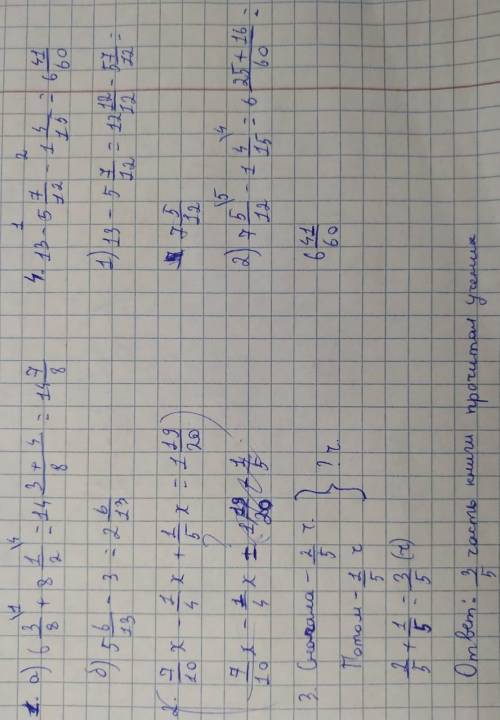 1. а) 6 3/8 + 8 1/2 = 14 3+4/8 = 14 7/8
б) 5 6/13 - 3 = 2 6/13
2. 7/10 x - 1/4 x + 1/5 x = 1 19/20
7/10 x - 1/4 x = 1 19/20 - 1/5
3. Сначала - 2/5 ч.
Потом - 1/5 ч
} ? ч.
2/5 + 1/5 = 3/5 (ч)
Ответ: 3/5 часть книги прочитал ученик
4. 13 - 5 7/12 - 1 4/15 = 6 41/60
1) 13 - 5 7/12 = 12 12/12 - 5 7/12 =
7 5/12
2) 7 5/12 - 1 4/15 = 6 25+16/60 =
6 41/60